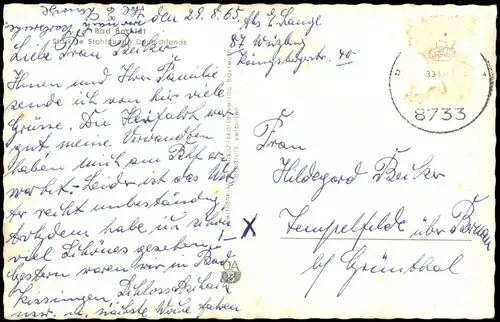 den 29.8.65
Abs. E. Langl
87 Würzburg
Königsbergerstr. 40
Bad Bocklet
Stahlquelle Deutschlands
Liebe Frau Becker
Ihnen und Ihrer Familie
sende ich von hier viele
Grüsse. Die Herfahrt war
gut, meine Verwandten
haben mich am Bhf er-
wartet. Leider ist das Wet-
ter recht unbeständig,
trotzdem habe ich schon
viel Schönes gesehen!
Gestern waren wir in Bad
Kissingen, Schloss
usw. u. nächste Woche fahren
8733
Frau
Hildegard Becker
Tempelfelde über Bernau
b/ Grünthal